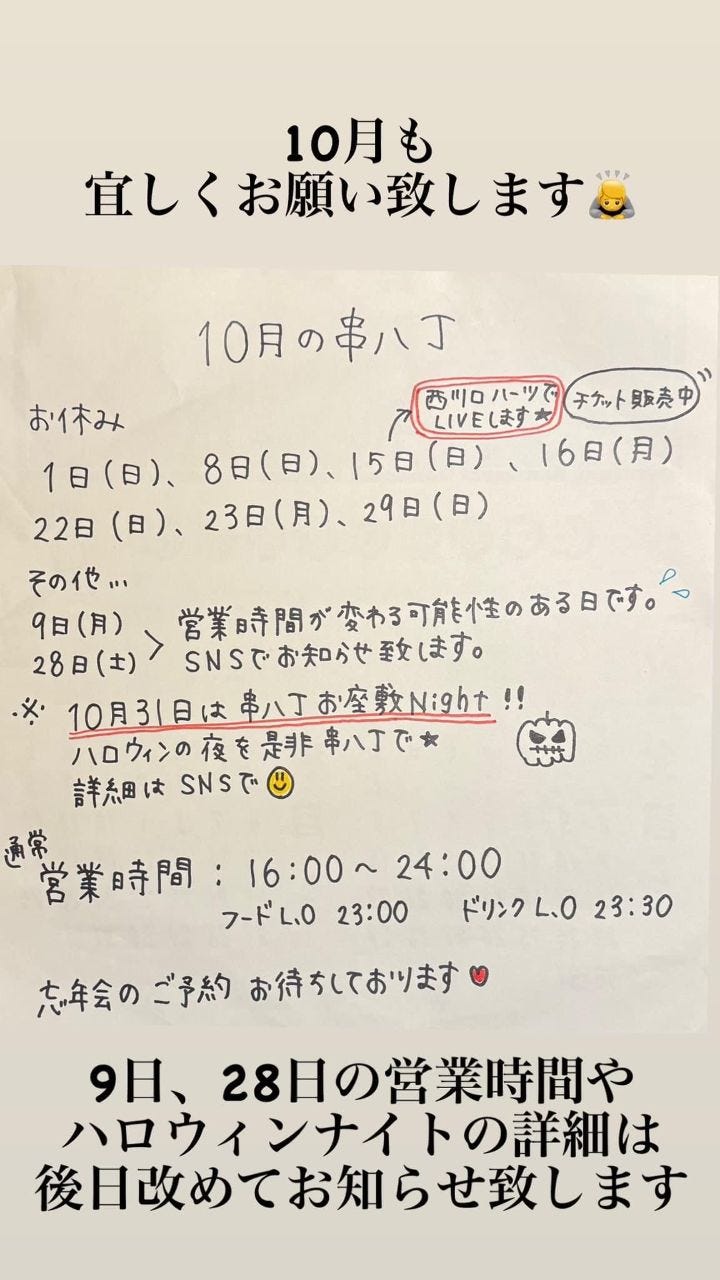 10月も
宜しくお願い致します🙇
10月の串八丁
お休み
西川口ハーツで
LIVEします★
チケット販売中
1日(日)、8日(日)、15日(日)、16日(月)
22日(日)、23日(月)、29日(日)
その他…
9日(月)
28日(土)
営業時間が変わる可能性のある日です。
SNSでお知らせ致します。
※ 10月31日は串八丁お座敷Night!!
ハロウィンの夜を是非串八丁で★
詳細はSNSで
通常
営業時間:16:00~24:00
フードL.O 23:00 ドリンクL.O 23:30
忘年会のご予約お待ちしております♥
9日、28日の営業時間や
ハロウィンナイトの詳細は
後日改めてお知らせ致します